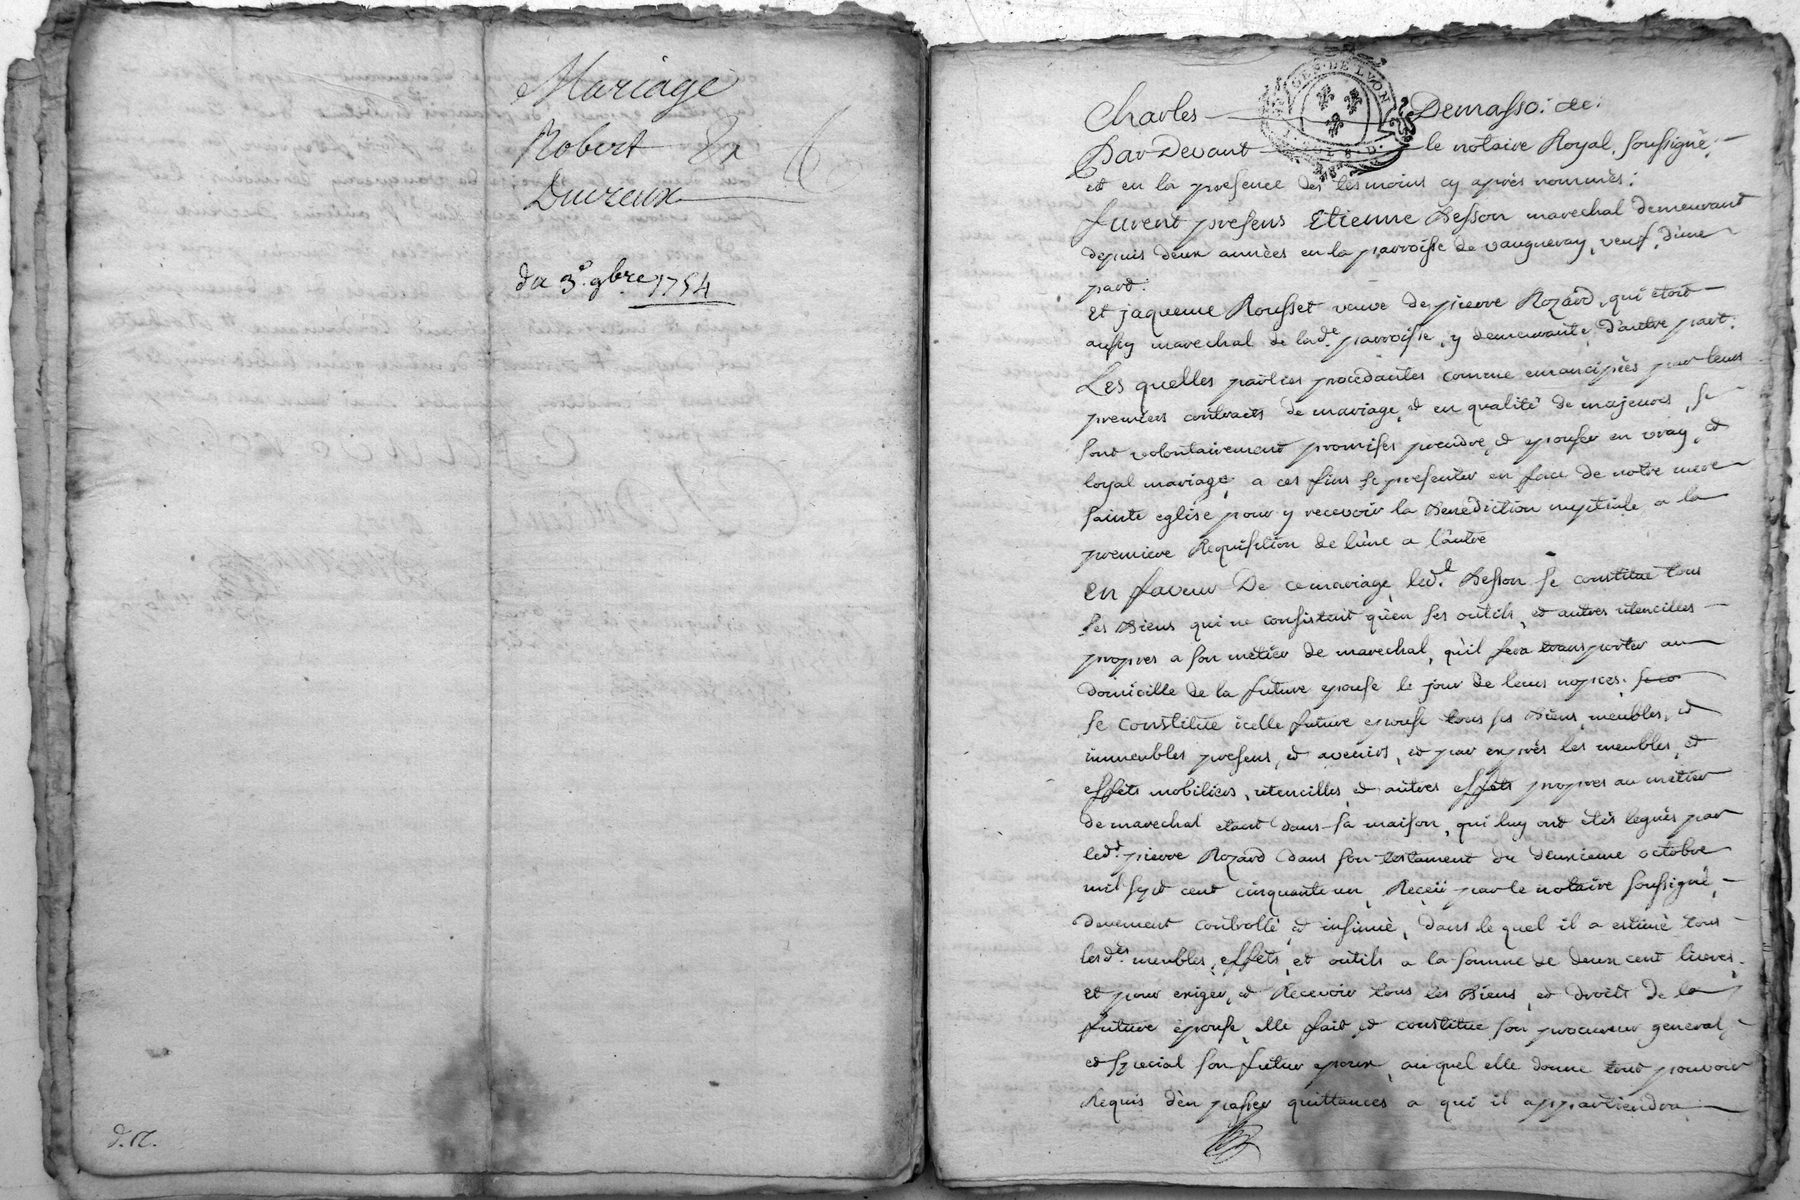 Mariage
Robert Et
Ducreux
du 3e. 9bre 1754
GEN. DE LYON
Charles Demasso: de:
Par Devant le notaire Royal, soussigné,
et en la presence des tesmoins cy après nommés;
furent presens Etienne Besson marechal demeurant
depuis deux années en la parroisse de vaugneray, veuf, d'une
part:
Et jaqueme Rousset veuve de pierre Rozard, qui etoit
aussy marechal de lade. parroisse, y demeurante, d'autre part.
Les quelles parties procedantes comme emancipées par leurs
premiers contracts de mariage, et en qualité de majeurs, se
sont volontairement promises prendre, et epouser en vray, et
loyal mariage, a ces fins se presenter en face de notre mere
sainte eglise pour y recevoir la Benediction nuptiale a la
premiere Requisition de l'une a l'autre
En faveur De ce mariage, led. Besson se constitue tous
ses Biens qui ne consistent qu'en ses outils, et autres utencilles
propres a son metier de marechal, qu'il fera transporter au
domicille de la future epouse le jour de leurs nopces.
se constitue icelle future epouse tous ses Biens, meubles, et
immeubles presens, et avenirs, et par exprés les meubles, et
effets mobiliers, utencilles, et autres effets propres au metier
de marechal etant dans sa maison, qui luy ont étés legués par
ledt. pierre Rozard dans son testament du deuxieme octobre
mil sept cent cinquante un, Receü par le notaire soussigné,
deuement controllé, et insinué, dans le quel il a estimé tous
lesdes. meubles, effets, et outils a la somme de deux cent livres.
Et pour exiger, et Recevoir tous les Biens, et droits de la
future epouse, elle fait et constitue son procureur general,
et special son futur epoux, au quel elle donne tout pouvoir
Requis d'en passer quittances a qui il appartiendra